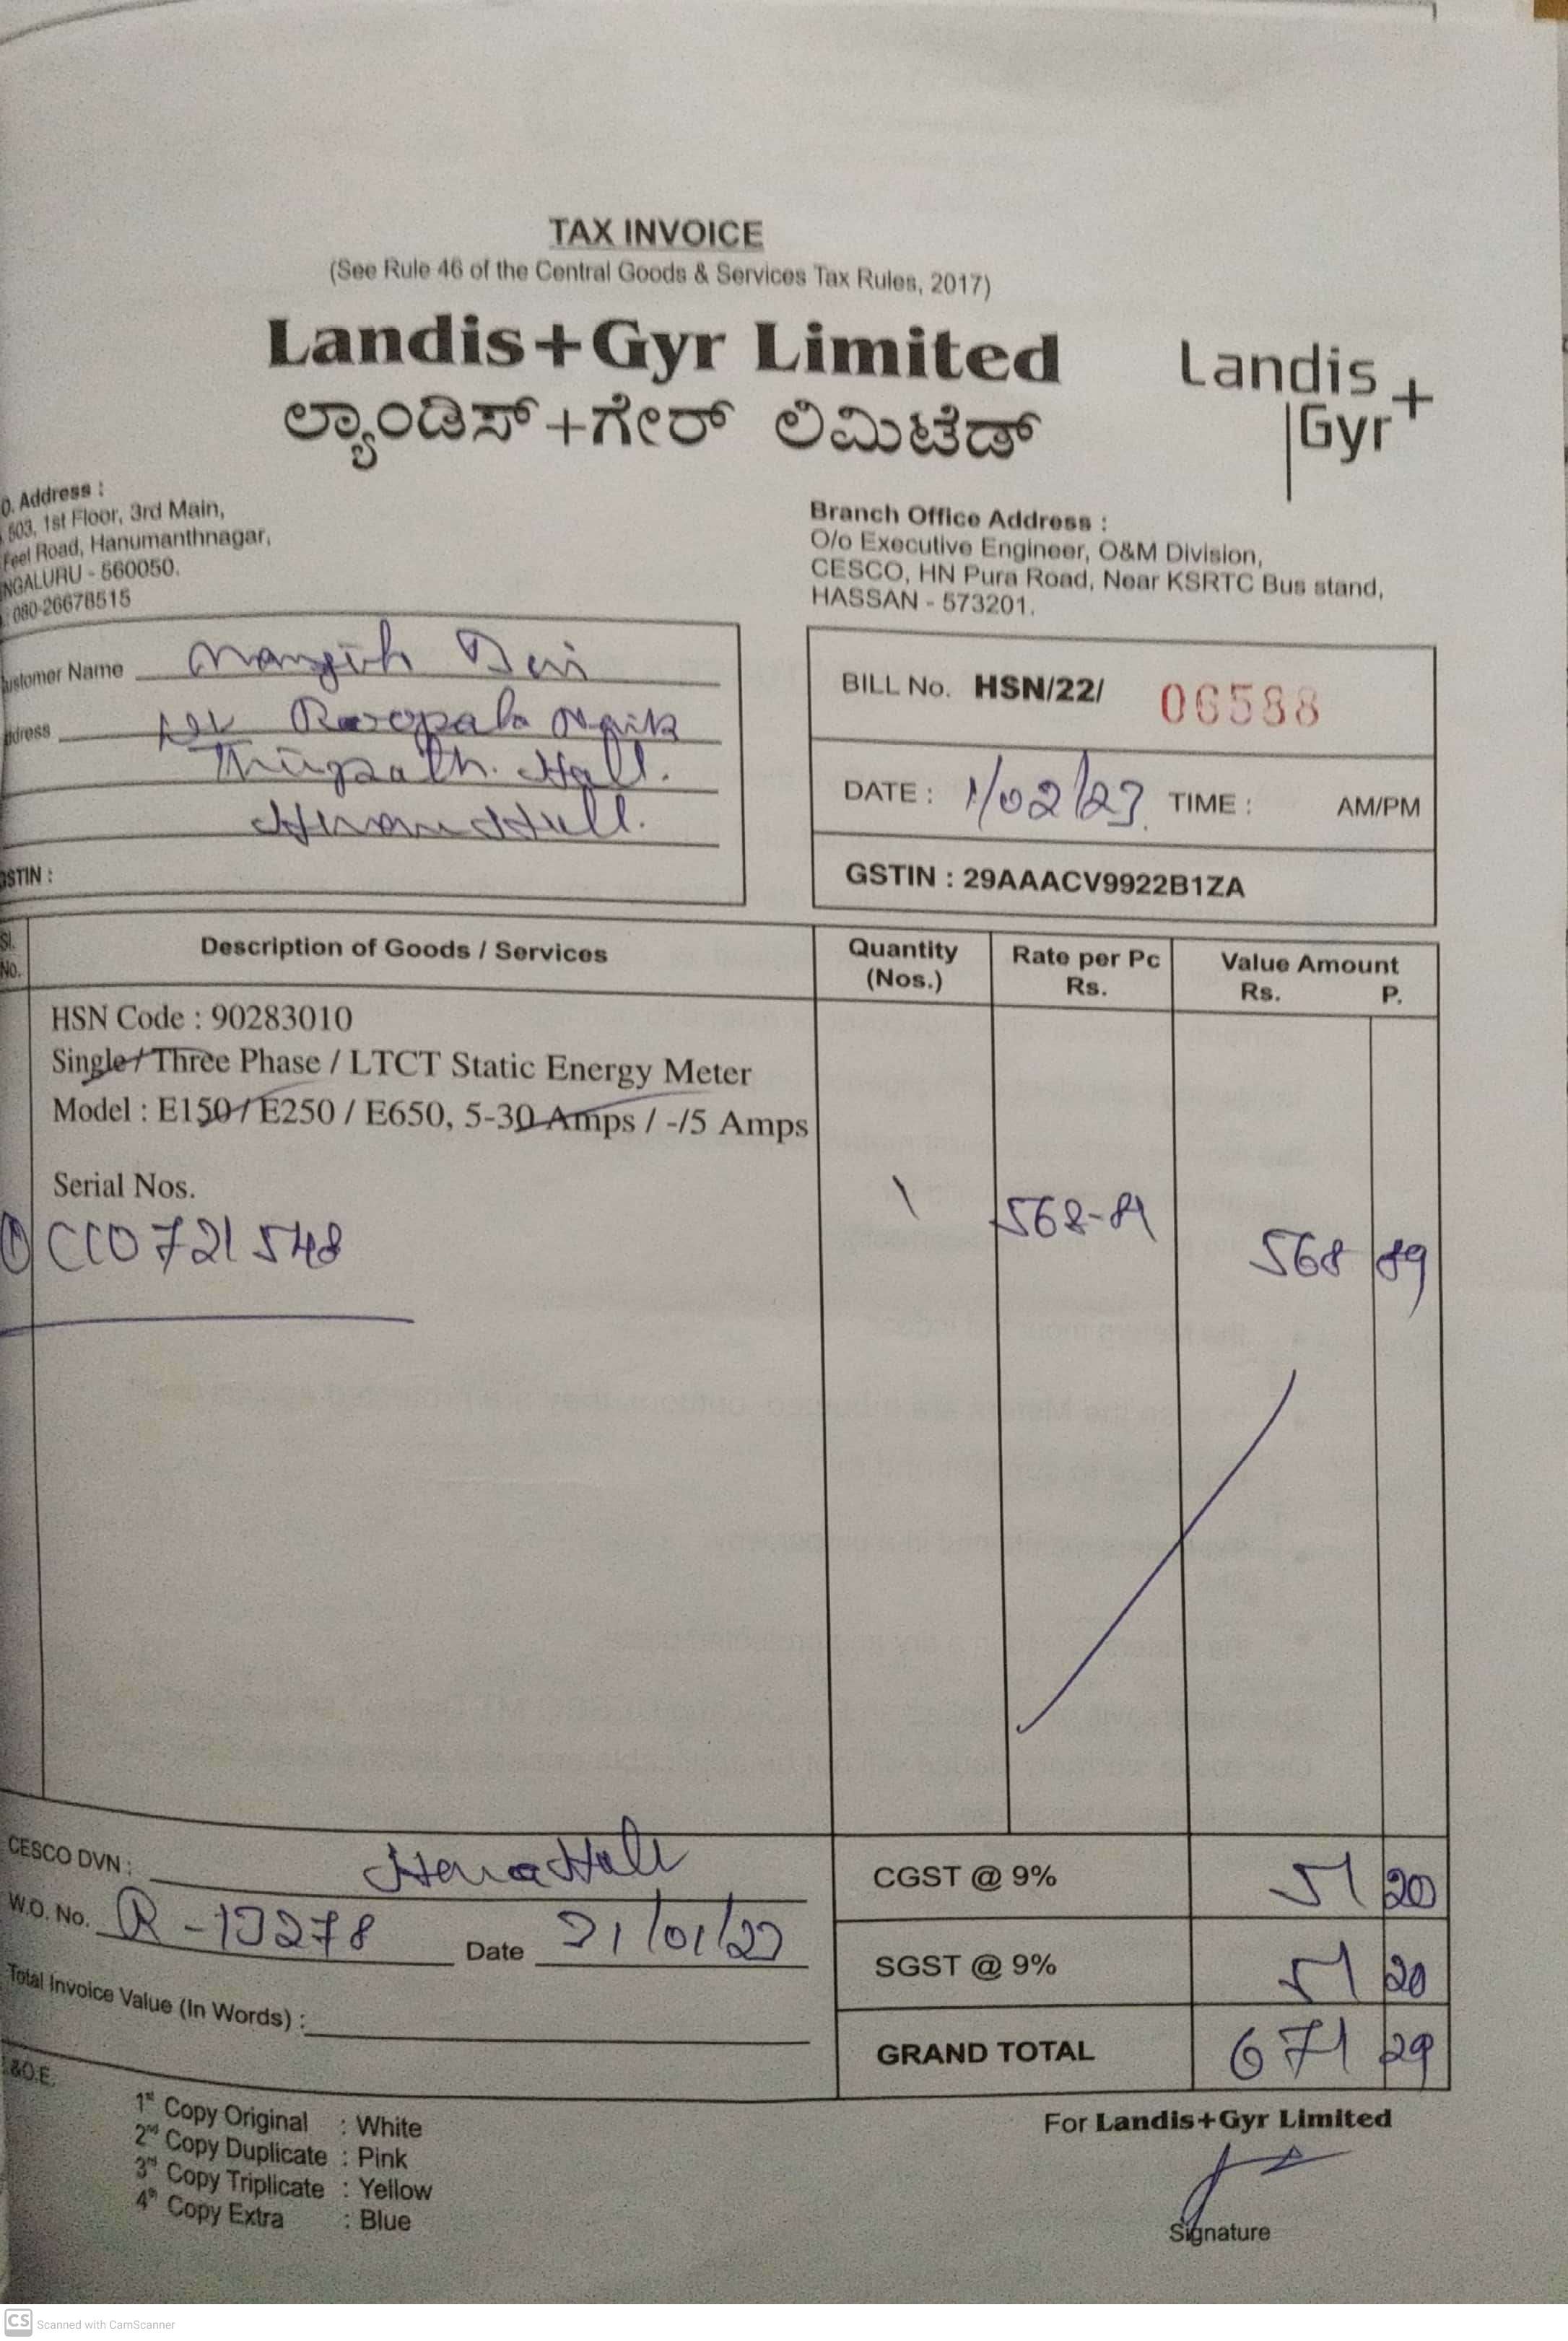 TAX INVOICE
(See Rule 46 of the Central Goods & Services Tax Rules, 2017)
Landis+Gyr Limited
ಲ್ಯಾಂಡಿಸ್+ಗೇರ್ ಲಿಮಿಟೆಡ್
Landis+
Gyr
O. Address :
503, 1st Floor, 3rd Main,
Feet Road, Hanumanthnagar,
NGALURU - 560050.
: 080-26678515
Branch Office Address :
O/o Executive Engineer, O&M Division,
CESCO, HN Pura Road, Near KSRTC Bus stand,
HASSAN - 573201.
ustomer Name
ddress
Hall.
GSTIN :
BILL No. HSN/22/ 06588
DATE : 1/02/23 TIME : AM/PM
GSTIN : 29AAACV9922B1ZA
Sl. No. Description of Goods / Services Quantity (Nos.) Rate per Pc Rs. Value Amount Rs. P.
HSN Code : 90283010
Single / Three Phase / LTCT Static Energy Meter
Model : E150 / E250 / E650, 5-30 Amps / -/5 Amps
Serial Nos.
1 568-89
① CC0721548 568 89
CESCO DVN :
CGST @ 9% 51 20
W.O. No. R-13278 Date 31/01/23
SGST @ 9% 51 20
Total Invoice Value (In Words) :
GRAND TOTAL 671 29
&O.E.
1st Copy Original : White
2nd Copy Duplicate : Pink
3rd Copy Triplicate : Yellow
4th Copy Extra : Blue
For Landis+Gyr Limited
Signature
CS Scanned with CamScanner